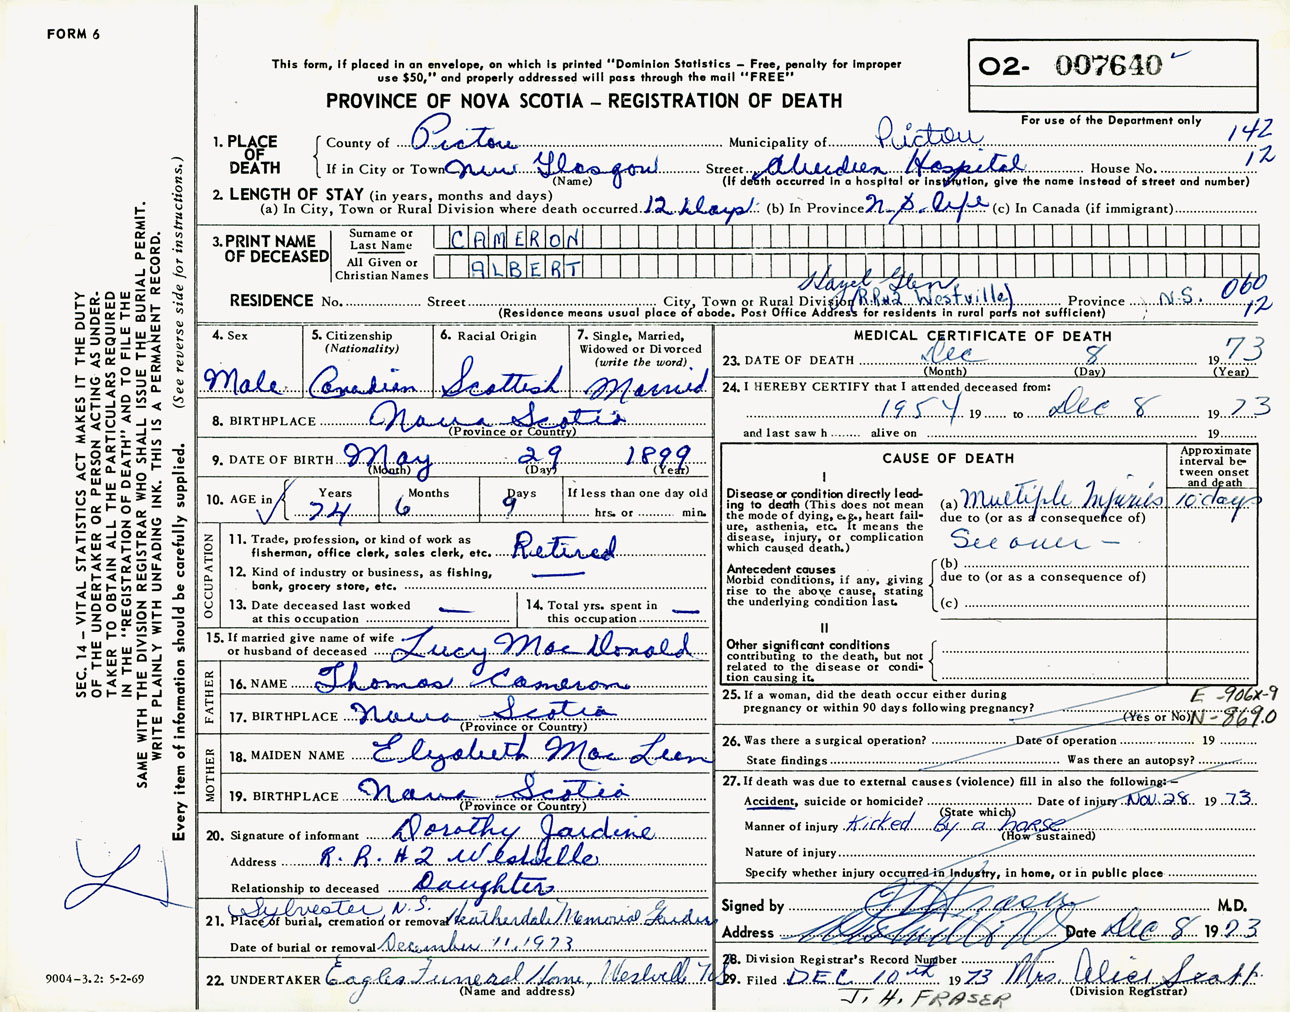 FORM 6
This form, if placed in an envelope, on which is printed "Dominion Statistics – Free, penalty for improper
use $50," and properly addressed will pass through the mail "FREE"
O2- 007640
For use of the Department only
PROVINCE OF NOVA SCOTIA – REGISTRATION OF DEATH
142
12
1. PLACE OF DEATH
County of Pictou Municipality of Pictou
If in City or Town New Glasgow Street Aberdeen Hospital House No.
(Name) (If death occurred in a hospital or institution, give the name instead of street and number)
2. LENGTH OF STAY (in years, months and days)
(a) In City, Town or Rural Division where death occurred 12 days (b) In Province N.S. life (c) In Canada (if immigrant)
3. PRINT NAME OF DECEASED
Surname or Last Name CAMERON
All Given or Christian Names ALBERT
Hazel Glen
RESIDENCE No. Street City, Town or Rural Division (R.R#2 Westville) Province N.S.
060
12
(Residence means usual place of abode. Post Office Address for residents in rural parts not sufficient)
4. Sex
Male
5. Citizenship
(Nationality)
Canadian
6. Racial Origin
Scottish
7. Single, Married,
Widowed or Divorced
(write the word)
Married
8. BIRTHPLACE Nova Scotia
(Province or Country)
9. DATE OF BIRTH May 29 1899
(Month) (Day) (Year)
10. AGE in Years Months Days If less than one day old
74 6 9 hrs. or min.
OCCUPATION
11. Trade, profession, or kind of work as
fisherman, office clerk, sales clerk, etc. Retired
12. Kind of industry or business, as fishing,
bank, grocery store, etc. —
13. Date deceased last worked
at this occupation —
14. Total yrs. spent in
this occupation —
15. If married give name of wife
or husband of deceased Lucy MacDonald
FATHER
16. NAME Thomas Cameron
17. BIRTHPLACE Nova Scotia
(Province or Country)
MOTHER
18. MAIDEN NAME Elizabeth MacLean
19. BIRTHPLACE Nova Scotia
(Province or Country)
20. Signature of informant Dorothy Jardine
Address R. R. #2 Westville
Relationship to deceased Daughter
Sylvester N.S.
21. Place of burial, cremation or removal Heatherdale Memorial Gardens
Date of burial or removal December 11, 1973
22. UNDERTAKER Eagles Funeral Home, Westville NS
(Name and address)
MEDICAL CERTIFICATE OF DEATH
23. DATE OF DEATH Dec 8 1973
(Month) (Day) (Year)
24. I HEREBY CERTIFY that I attended deceased from:
1954 19 to Dec 8 1973
and last saw h alive on 19
CAUSE OF DEATH
Approximate
interval be-
tween onset
and death
I
Disease or condition directly lead-
ing to death (This does not mean
the mode of dying, e.g., heart fail-
ure, asthenia, etc. It means the
disease, injury, or complication
which caused death.)
(a) Multiple Injuries 10 days
due to (or as a consequence of)
See over –
Antecedent causes
Morbid conditions, if any, giving
rise to the above cause, stating
the underlying condition last.
(b)
due to (or as a consequence of)
(c)
II
Other significant conditions
contributing to the death, but not
related to the disease or condi-
tion causing it.
25. If a woman, did the death occur either during
pregnancy or within 90 days following pregnancy?
(Yes or No)
E-906x-9
N-869.0
26. Was there a surgical operation? Date of operation 19
State findings Was there an autopsy?
27. If death was due to external causes (violence) fill in also the following:–
Accident, suicide or homicide? Date of injury Nov. 28 1973
(State which)
Manner of injury Kicked By a horse
(How sustained)
Nature of injury
Specify whether injury occurred in industry, in home, or in public place
Signed by M.D.
Address Westville NS Date Dec 8 1973
28. Division Registrar's Record Number
29. Filed DEC 10th 1973 Mrs. Alice Scott
(Division Registrar)
J. H. FRASER
SEC. 14 – VITAL STATISTICS ACT MAKES IT THE DUTY
OF THE UNDERTAKER OR PERSON ACTING AS UNDER-
TAKER TO OBTAIN ALL THE PARTICULARS REQUIRED
IN THE "REGISTRATION OF DEATH" AND TO FILE THE
SAME WITH THE DIVISION REGISTRAR WHO SHALL ISSUE THE BURIAL PERMIT.
WRITE PLAINLY WITH UNFADING INK. THIS IS A PERMANENT RECORD.
Every item of information should be carefully supplied. (See reverse side for instructions.)
9004–3.2: 5-2-69